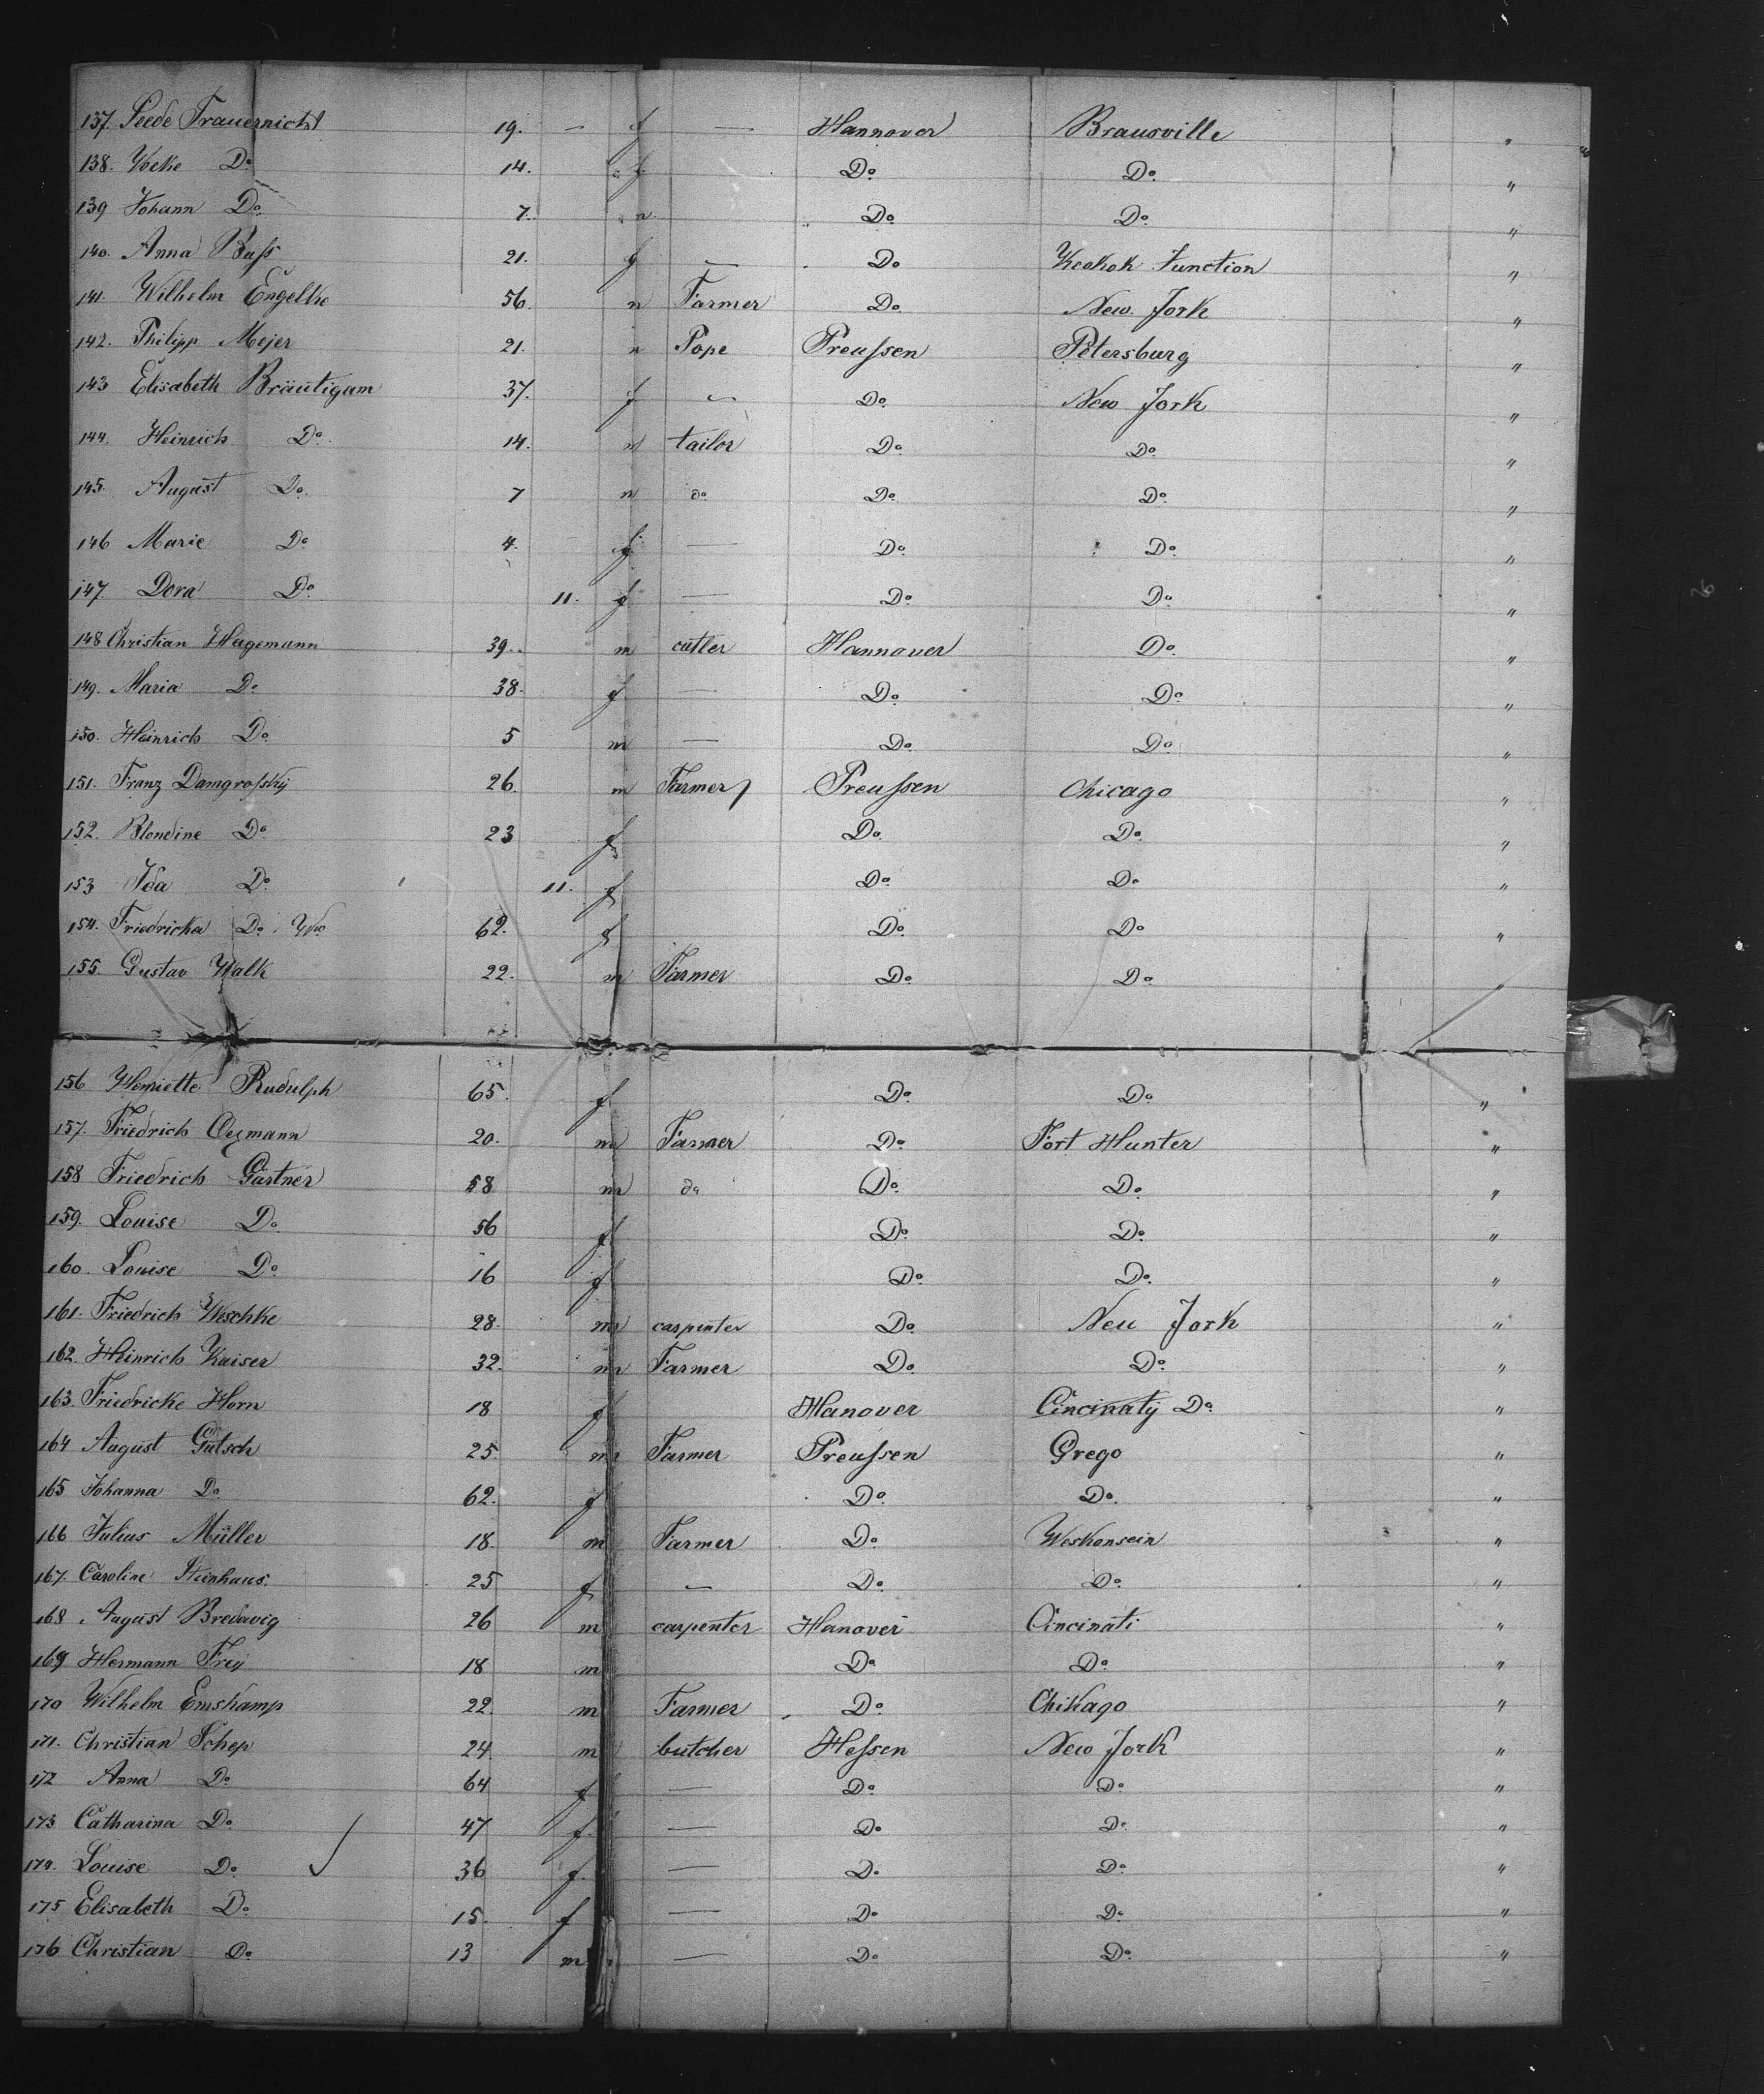 137. Seede Trauernicht 19. — f — Hannover Brausville "
138. Yocke Do 14. " f. Do Do "
139 Johann Do 7. " m. Do Do "
140. Anna Buſs 21. f — Do Keokok Junction "
141. Wilhelm Engelke 56. m Farmer Do New. Jork "
142. Philipp Mejer 21. m Pope Preuſsen Petersburg "
143 Elisabeth Bräutigam 37. f — Do New Jork "
144. Heinrich Do 14. m tailor Do Do "
145. August Do. 7 m do Do Do "
146 Marie Do 4. f. — Do Do "
147. Dora Do 11. f — Do Do "
148 Christian Hagemann 39. m cutler Hannover Do "
149. Maria Do 38. f — Do Do "
150. Heinrich Do 5 m — Do Do "
151. Franz Damgroſskij 26. m Farmer Preuſsen Chicago "
152. Blondine Do 23 f Do Do "
153 Ida Do 11. f Do Do "
154. Friedricka Do 62. f Do Do "
155. Gustav Walk 22. m Farmer Do Do "
156 Henriette Rudulph 65. f Do Do "
157. Friedrich Oezmann 20. m Farmer Do Fort Hunter "
158 Friedrich Gärtner 58 m do Do Do "
159. Louise Do 56 f Do Do "
160. Louise Do 16 f Do Do "
161. Friedrich Weschke 28. m carpenter Do New Jork "
162. Heinrich Kaiser 32. m Farmer Do Do "
163. Friedricke Horn 18 f Hanover Cincinatij Do "
164 August Gütsch 25. m Farmer Preuſsen Grego "
165 Johanna Do 62. f Do Do. "
166 Julius Müller 18. m Farmer Do Weskonsein "
167. Caroline Steinhaus. 25 f — Do Do "
168 August Bredavig 26 m carpenter Hanover Cincinati "
169 Hermann Freij 18 m Do Do "
170 Wilhelm Emskamp 22. m Farmer Do Chikago "
171. Christian Schep 24. m butcher Heſsen New Jork "
172 Anna Do 64 f — Do Do "
173 Catharina Do 47 f. — Do Do "
174. Louise Do 36 f. — Do Do "
175 Elisabeth Do 15. f — Do Do "
176 Christian Do 13 m — Do Do "